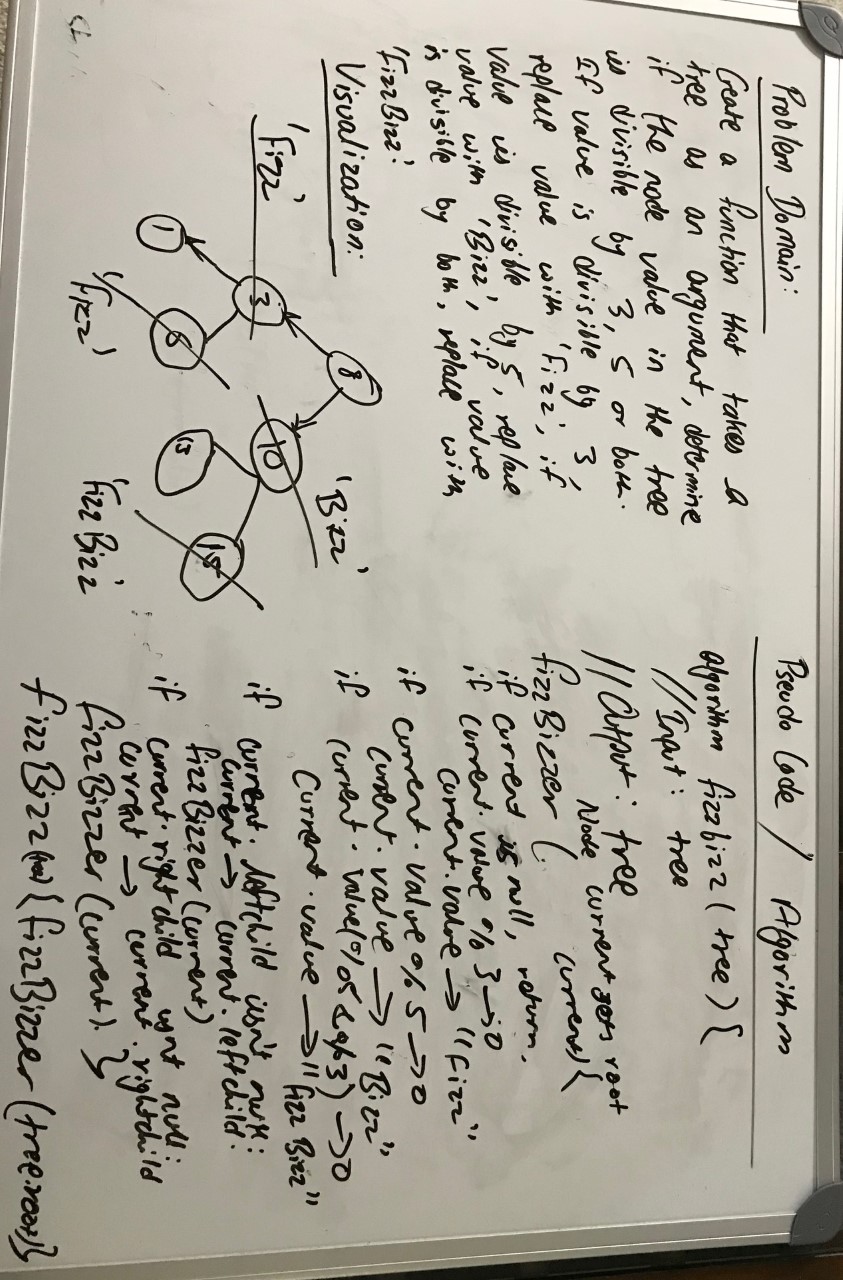 Problem Domain:
Create a function that takes a
tree as an argument, determine
if the node value in the tree
is divisible by 3, 5 or both.
If value is divisible by 3,
replace value with 'Fizz', if
value is divisible by 5, replace
value with 'Bizz', if value
is divisible by both, replace with
'FizzBizz'
Visualization:
'Fizz'
8
3
10
'Bizz'
1
6
'Fizz'
15
'FizzBizz'
Pseudo Code / Algorithm
algorithm fizzbizz(tree) {
//Input: tree
//Output: tree
Node current root
fizzBizzer (current) {
if current is null, return,
if current.value % 3 → 0
current.value → "fizz"
if current.value % 5 → 0
current.value → "Bizz"
if current.value(%5 & %3) → 0
Current.value → "fizzBizz"
if current.leftchild isn't null:
current → current.leftchild:
fizzBizzer(current)
if current.rightchild isnt null:
current → current.rightchild
fizzBizzer(current) }
fizzBizz { fizzBizzer(tree.root)}